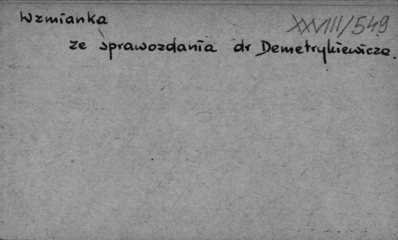 Wzmianka
XXVIII/549
ze sprawozdania dr Demetrykiewicza.